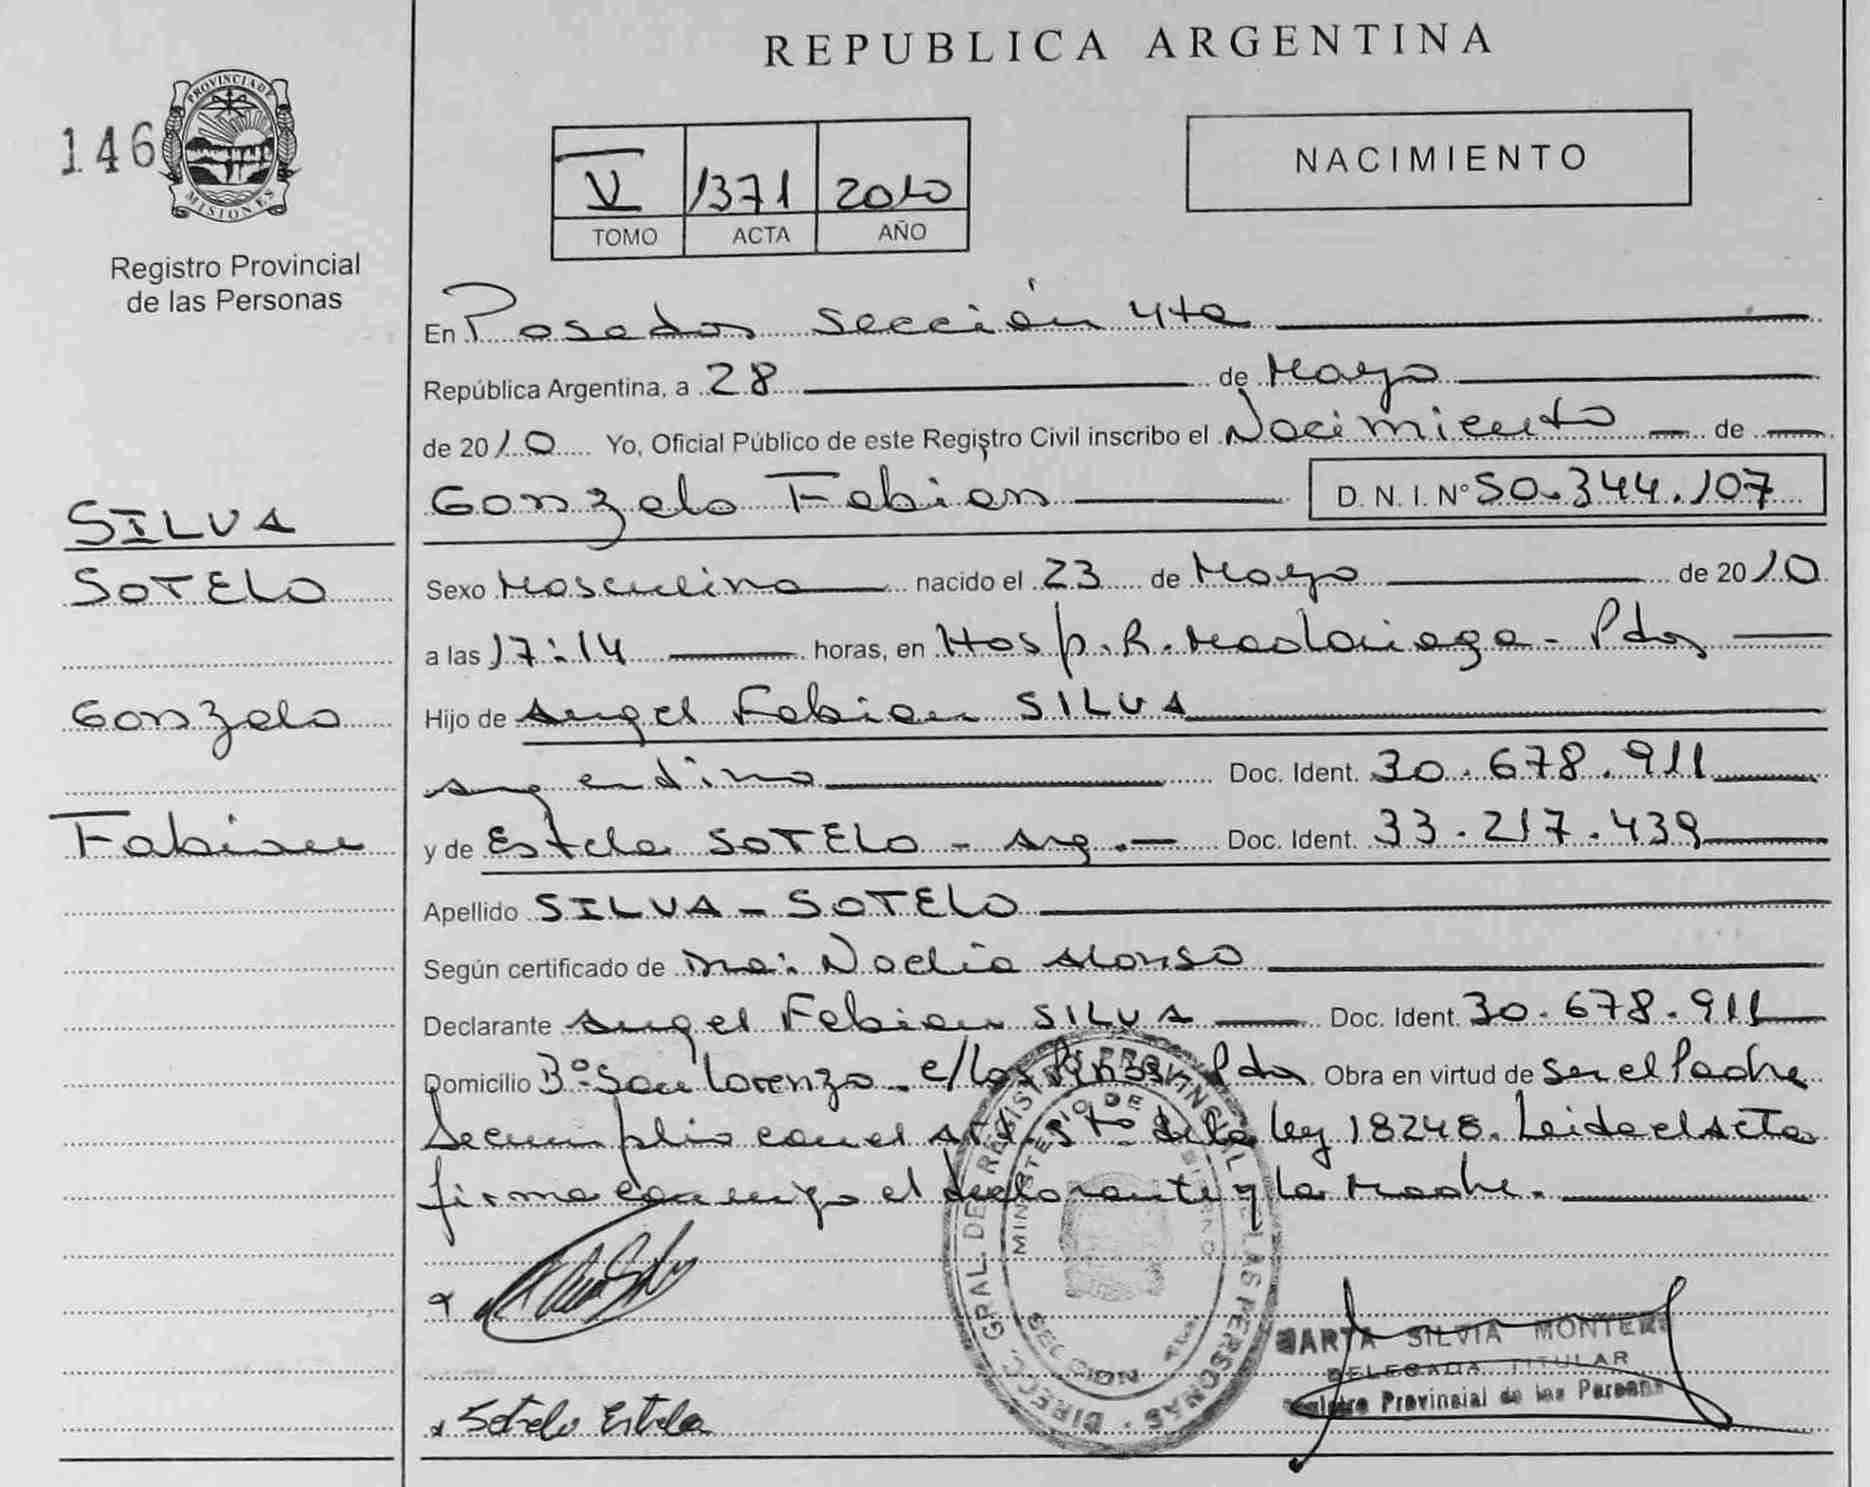 REPUBLICA ARGENTINA
146
PROVINCIA DE
MISIONES
Registro Provincial
de las Personas
V 1371 2010
TOMO ACTA AÑO
NACIMIENTO
En Posadas Sección 4ta
República Argentina, a 28 de Mayo
de 2010 Yo, Oficial Público de este Registro Civil inscribo el Nacimiento de
Gonzalo Fabian D.N.I. Nº 50.344.107
SILVA
SOTELO
Gonzalo
Fabian
Sexo Masculino nacido el 23 de Mayo de 2010
a las 17:14 horas, en Hosp. R. Madariaga - Pdas
Hijo de Angel Fabian SILVA
argentino Doc. Ident. 30.678.911
y de Estela SOTELO - arg. - Doc. Ident. 33.217.439
Apellido SILVA - SOTELO
Según certificado de Noelia Alonso
Declarante Angel Fabian SILVA Doc. Ident. 30.678.911
Domicilio Bº San Lorenzo - e/ Pdas Obra en virtud de ser el Padre
Se cumplio con el art. 5to de la ley 18248. Leida el acta
firma conmigo el declarante y la madre.
DIRECC. GRAL. DE REGISTRO PROVINCIAL DE LAS PERSONAS
MINISTERIO DE GOBIERNO
SECCION 4ta
Sotelo Estela
MARTA SILVIA MONTERO
DELEGADA TITULAR
Registro Provincial de las Personas